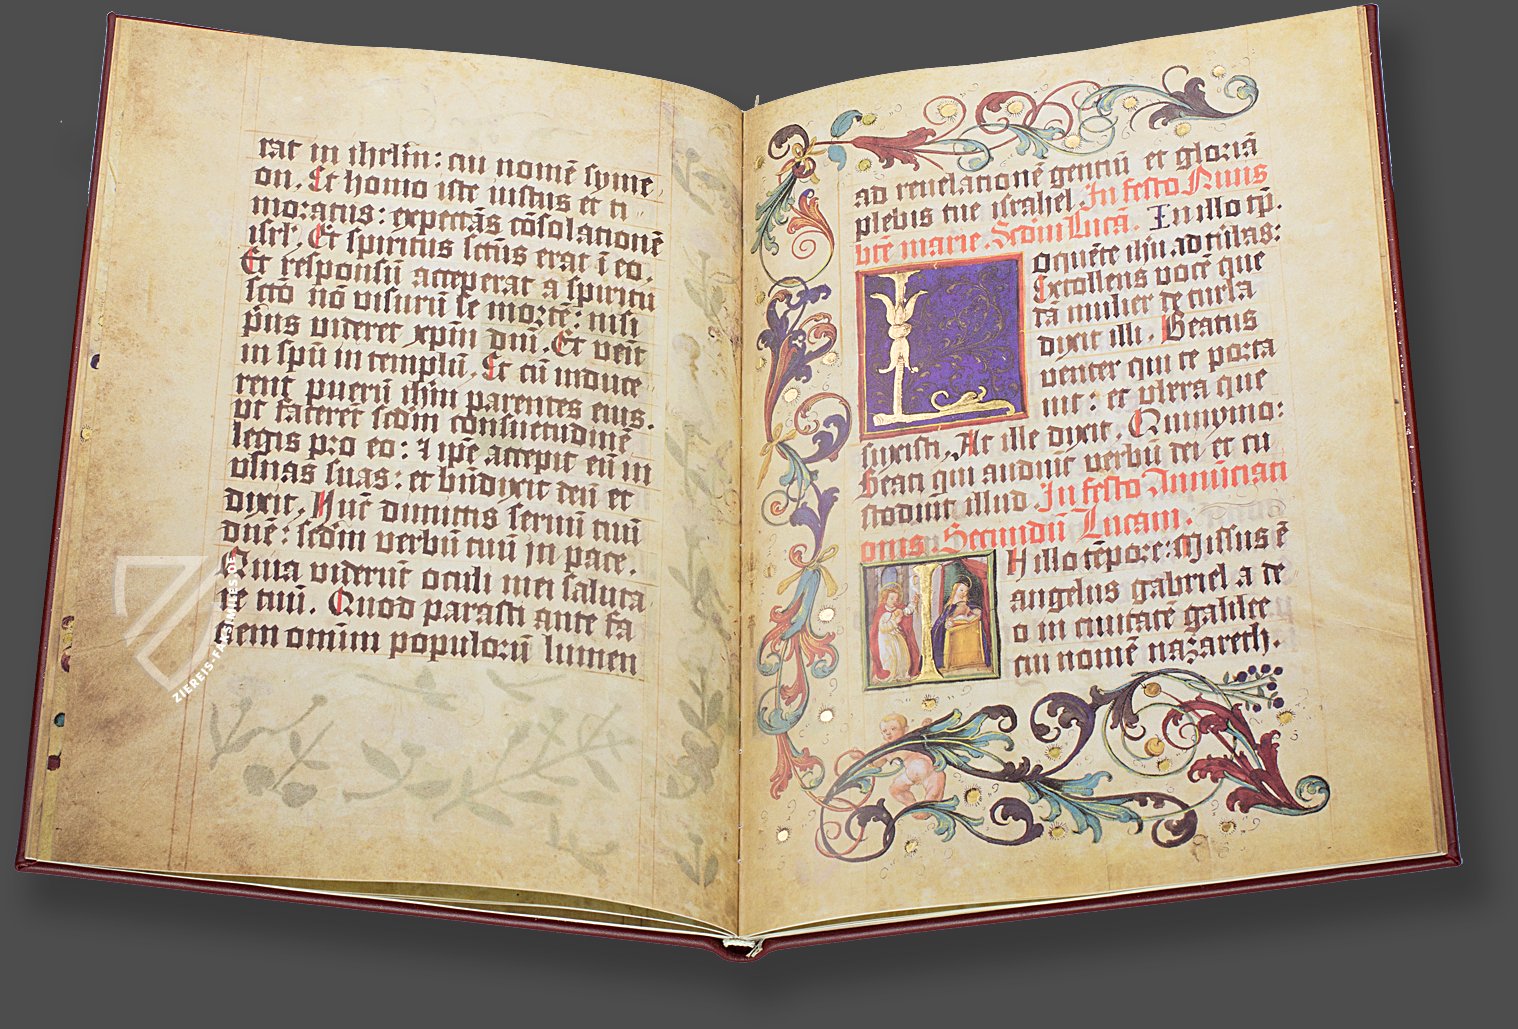 rat in ihrlm̄: cui nomē syme
on. Et homo iste iustus et ti
moratus: expectās cōsolationē
isrl'. Et spiritus sctūs erat ī eo.
Et responsū acceperat a spiritu
sctō nō visurū se mortē: nisi
p̄us videret xp̄m dn̄i. Et venit
in sp̄u in templū. Et cū induce
rent puerū ihm̄ parentes eius.
vt facerēt scdm̄ consuetudinē
legis pro eo: ⁊ ip̄e accepit eū in
vlnas suas: et bn̄dixit deū et
dixit. Nūc dimittis seruū tuū
dn̄e: scdm̄ verbū tuū in pace.
Quia viderūt oculi mei saluta
re tuū. Quod parasti ante fa
ciem omīm populorū lumen
ZIEREIS-FACSIMILES.DE
ad reuelationē gentiū et gloriā
plebis tue israhel. In festo Niuis
btē marie. Scdm Lucā. In illo tp̄.
Loquēte ihū ad turbas:
Extollens vocē que
dā mulier de turba
dixit illi. Beatus
venter qui te porta
uit: et vbera que
suxisti. At ille dixit. Quinymo:
Beati qui audiūt verbū dei et cu
stodiūt illud. In festo Annūciati
onis Secundū Lucam.
In illo tēpore: Missus ē
angelus gabriel a de
o in ciuitatē galilee
cui nomē nazareth.